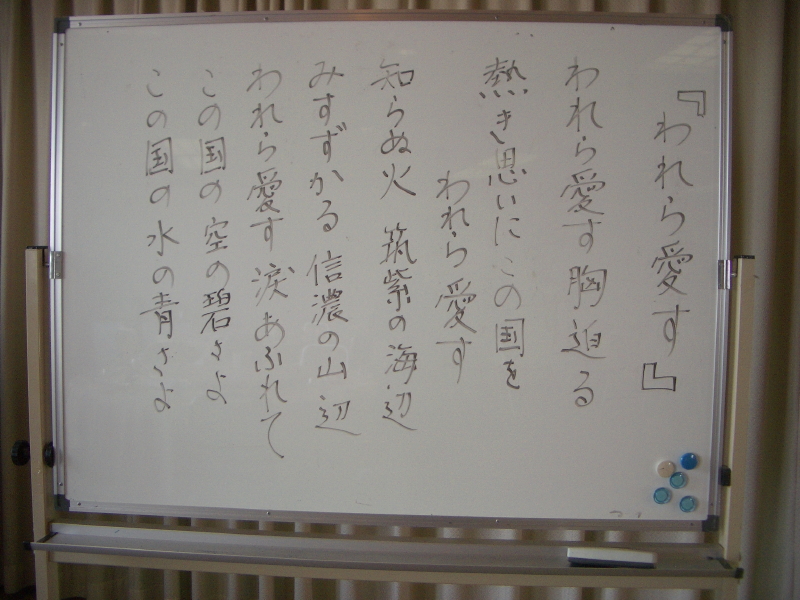 『われら愛す』
われら愛す 胸迫る
熱き思いに この国を
われら愛す
知らぬ火 筑紫の海辺
みすずかる 信濃の山辺
われら愛す 涙あふれて
この国の空の碧さよ
この国の水の青さよ